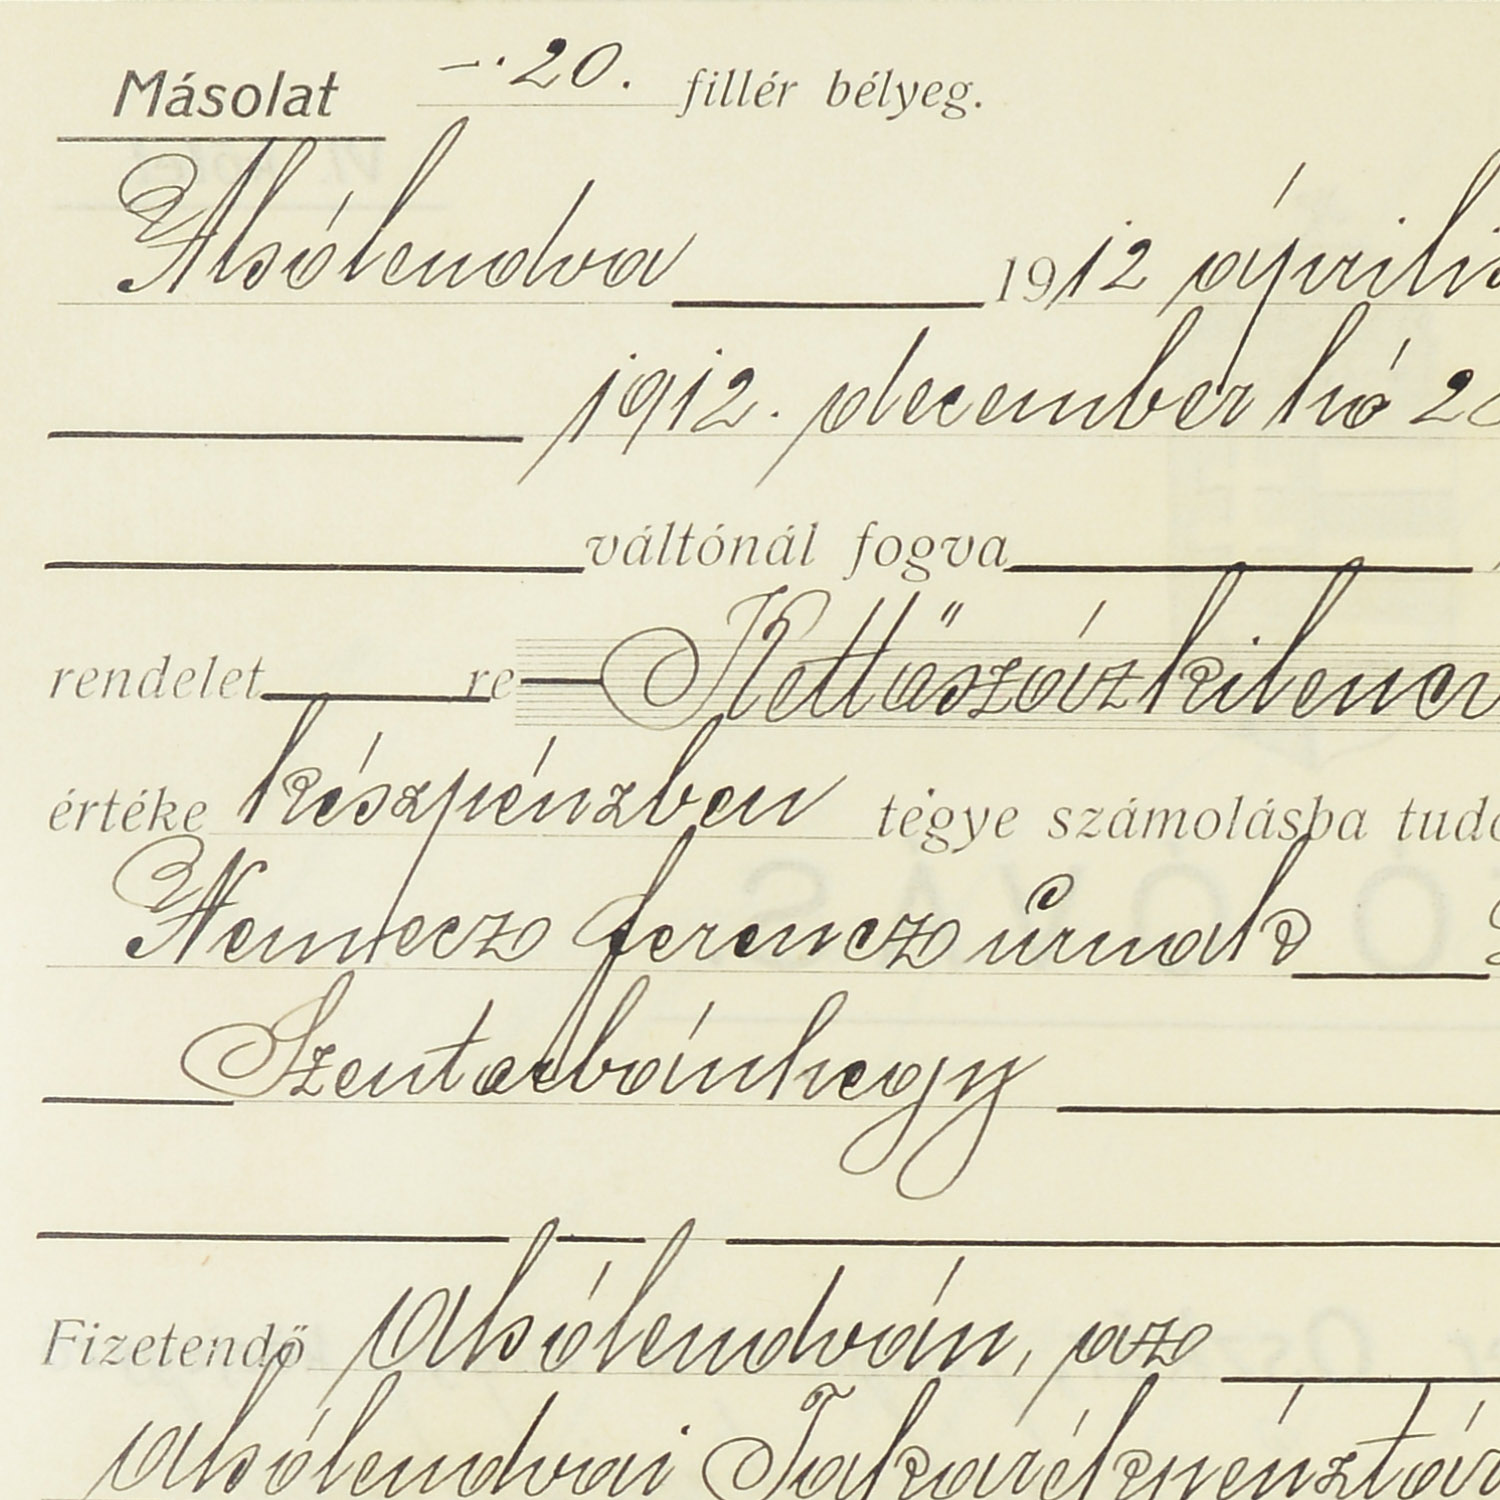 Másolat —.20. fillér bélyeg.
Alsólendva 1912 április
1912. december hó 2
váltónál fogva
rendelet re Kettőszázkilenc
értéke készpénzben tégye számolásba tud
Nemecz Ferencz úrnak
Szentorbánhegy
Fizetendő Alsólendván, az
Alsólendvai Takarékpénztár